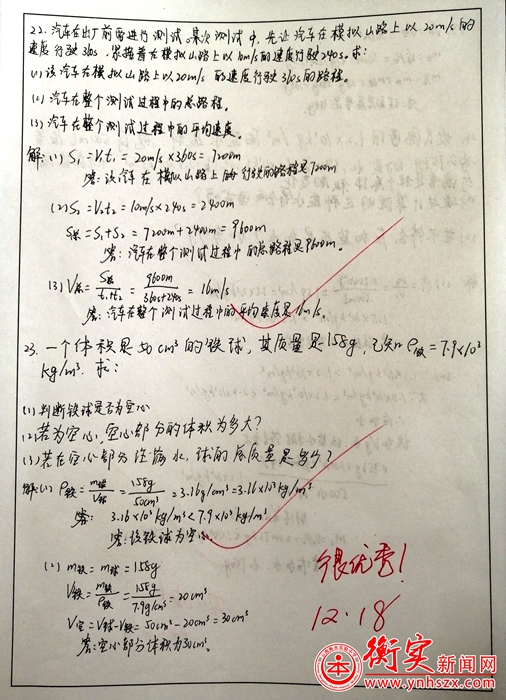 22. 汽车在出厂前要进行测试。某次测试中，先让汽车在模拟山路上以20m/s的
速度行驶360s，紧接着在模拟山路上以10m/s的速度行驶240s。求：
(1)该汽车在模拟山路上以20m/s的速度行驶360s的路程。
(2)汽车在整个测试过程中的总路程。
(3)汽车在整个测试过程中的平均速度。
解：(1) S₁=V₁t₁=20m/s×360s=7200m
答：该汽车在模拟山路上行驶的路程是7200m
(2)S₂=V₂t₂=10m/s×240s=2400m
S总=S₁+S₂=7200m+2400m=9600m
答：汽车在整个测试过程中的总路程是9600m。
(3) V总=S总/t₁+t₂=9600m/360s+240s=16m/s
答：汽车在整个测试过程中的平均速度是16m/s。
23. 一个体积是50cm³的铁球，其质量是158g，已知ρ铁=7.9×10³
kg/m³. 求：
(1)判断铁球是否为空心
(2)若为空心，空心部分的体积为多大？
(3)若在空心部分注满水，球的总质量是多少？
解：(1) ρ球=m球/V球=158g/50cm³=3.16g/cm³=3.16×10³kg/m³
答：3.16×10³kg/m³<7.9×10³kg/m³
答：该铁球为空心。
(2) m铁=m球=158g
V铁=m铁/ρ铁=158g/7.9g/cm³=20cm³
V空=V球-V铁=50cm³-20cm³=30cm³
答：空心部分体积为30cm³。
很优秀！
12.18
衡实新闻网
www.ynhszx.com